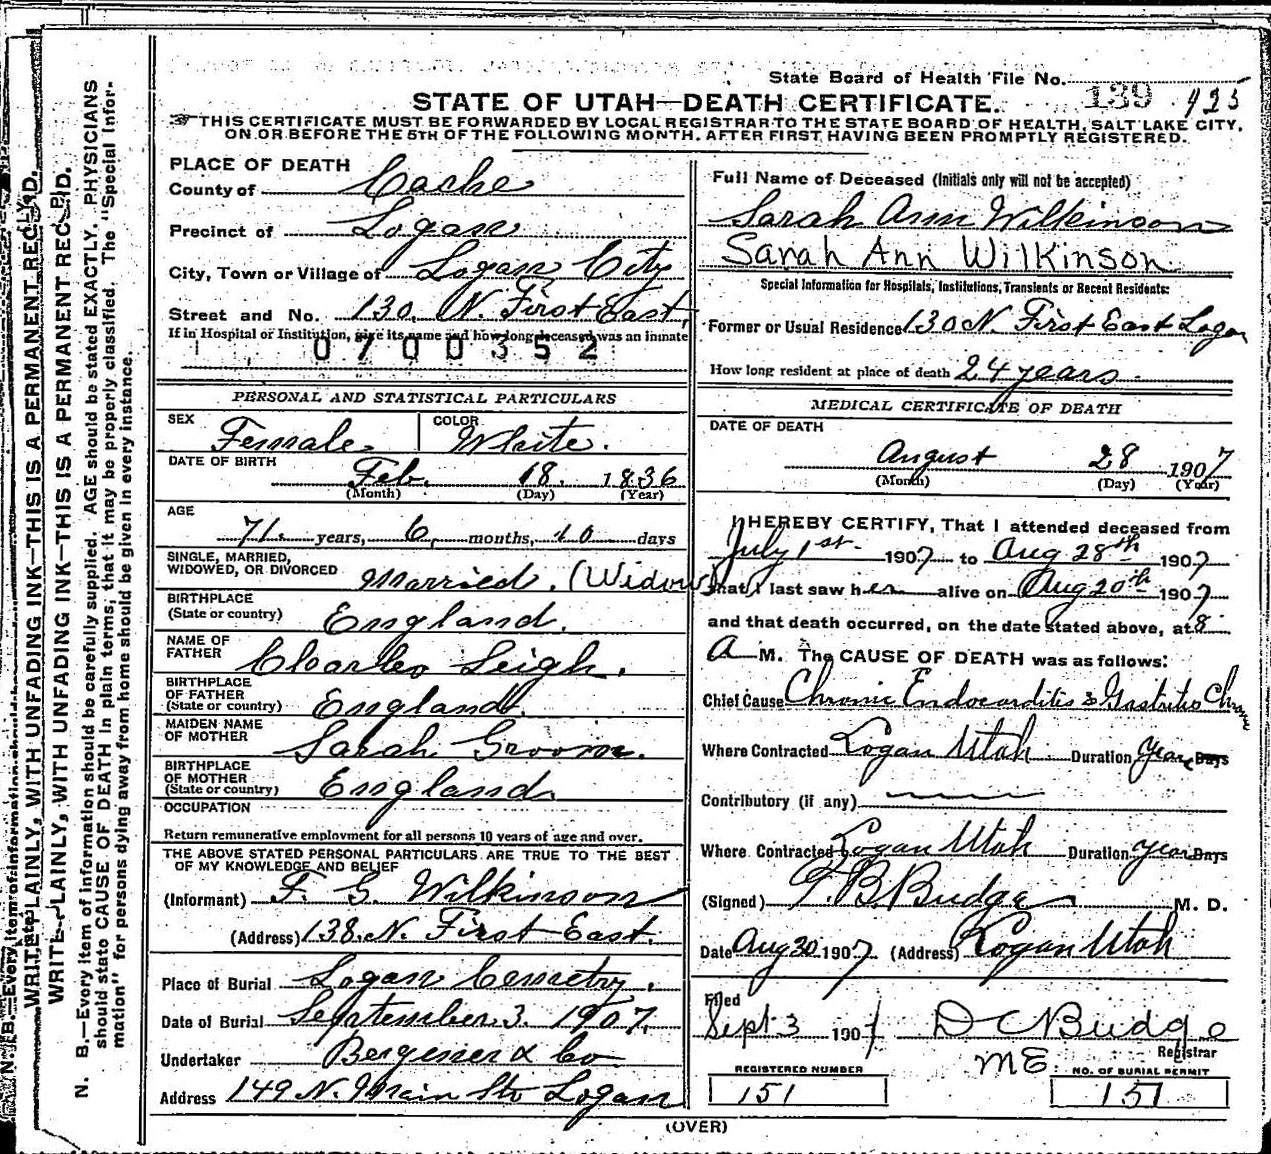 State Board of Health File No. 139 925
STATE OF UTAH—DEATH CERTIFICATE.
THIS CERTIFICATE MUST BE FORWARDED BY LOCAL REGISTRAR TO THE STATE BOARD OF HEALTH, SALT LAKE CITY,
ON OR BEFORE THE 5TH OF THE FOLLOWING MONTH. AFTER FIRST HAVING BEEN PROMPTLY REGISTERED.
PLACE OF DEATH
County of Cache
Precinct of Logan
City, Town or Village of Logan City
Street and No. 130. N. First East.
If in Hospital or Institution, give its name and how long deceased was an inmate
0700352
PERSONAL AND STATISTICAL PARTICULARS
SEX Female COLOR White.
DATE OF BIRTH Feb. 18. 1836
(Month) (Day) (Year)
AGE
71. years, 6, months, 10 days
SINGLE, MARRIED,
WIDOWED, OR DIVORCED Married. (Widow)
BIRTHPLACE
(State or country) England.
NAME OF
FATHER Charles Leigh.
BIRTHPLACE
OF FATHER
(State or country) England.
MAIDEN NAME
OF MOTHER Sarah Groom.
BIRTHPLACE
OF MOTHER
(State or country) England.
OCCUPATION
Return remunerative employment for all persons 10 years of age and over.
THE ABOVE STATED PERSONAL PARTICULARS ARE TRUE TO THE BEST
OF MY KNOWLEDGE AND BELIEF
(Informant) F. G. Wilkinson
(Address) 138. N. First East.
Place of Burial Logan Cemetry.
Date of Burial September 3. 1907.
Undertaker & Co
Address 149 N. Main Str Logan
Full Name of Deceased (Initials only will not be accepted)
Sarah Ann Wilkinson
Sarah Ann Wilkinson
Special Information for Hospitals, Institutions, Transients or Recent Residents:
Former or Usual Residence 130 N First East Logan
How long resident at place of death 24 years
MEDICAL CERTIFICATE OF DEATH
DATE OF DEATH
August 28 1907
(Month) (Day) (Year)
I HEREBY CERTIFY, That I attended deceased from
July 1st 1907 to Aug 28th 1907
that I last saw her alive on Aug 20th 1907
and that death occurred, on the date stated above, at 8
A M. The CAUSE OF DEATH was as follows:
Chief Cause Chronic Endocarditis & Gastritis
Where Contracted Logan Utah Duration Years Days
Contributory (if any)
Where Contracted Logan Utah Duration years Days
(Signed) T. B. Budge M. D.
Date Aug 30 1907 (Address) Logan Utah
Filed
Sept 3 1907 D C Budge
Registrar
ME
REGISTERED NUMBER NO. OF BURIAL PERMIT
151 151
(OVER)
WRITE PLAINLY, WITH UNFADING INK—THIS IS A PERMANENT RECORD.
WRITE PLAINLY, WITH UNFADING INK—THIS IS A PERMANENT RECORD.
N. B.—Every item of information should be carefully supplied. AGE should be stated EXACTLY. PHYSICIANS
should state CAUSE OF DEATH in plain terms, that it may be properly classified. The "Special Infor-
mation" for persons dying away from home should be given in every instance.